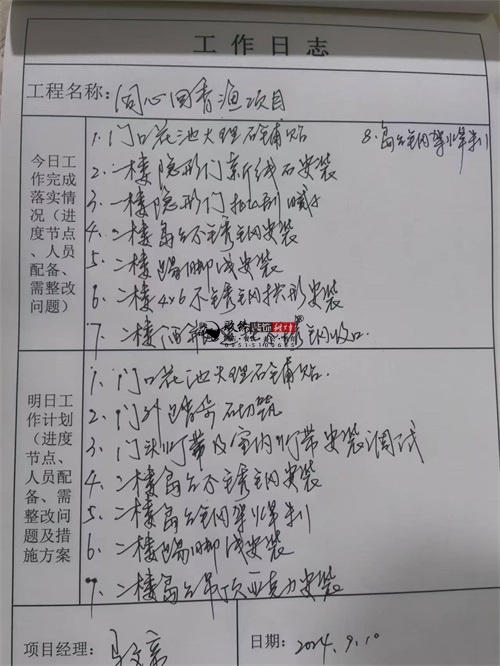 工作日志
工程名称: 同心回青渔项目
今日工作完成落实情况（进度节点、人员配备、需整改问题）
1. 门口花池大理石铺贴
8. 岛台钢架焊制
2. 一楼隐形门新线石安装
3. 一楼隐形门批刮腻子
4. 二楼岛台不锈钢安装
5. 二楼踢脚线安装
6. 二楼4×6不锈钢拱形安装
7. 二楼 不锈钢收口.
装饰
0951-5
明日工作计划（进度节点、人员配备、需整改问题及措施方案
1. 门口花池大理石铺贴.
2. 门外 石切筑
3. 门头灯带及室内灯带安装调试
4. 二楼岛台不锈钢安装
5. 二楼岛台钢架焊制
6. 二楼踢脚线安装
7. 二楼岛台吊顶亚克力安装
项目经理:
日期: 2024.9.10